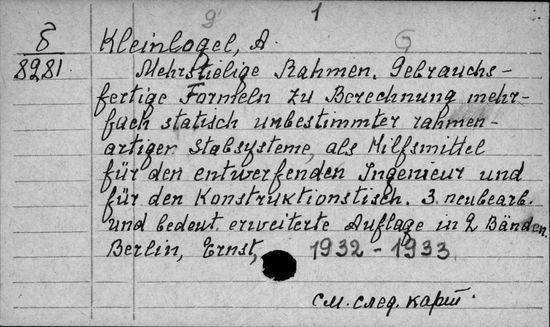 1
δ Kleinlogel, A.
8281. Mehrstielige Rahmen. Gebrauchs-
fertige Formeln zu Berechnung mehr-
fach statisch unbestimmter rahmen-
artiger Stabsysteme, als Hilfsmittel
für den entwerfenden Ingenieur und
für den Konstruktionstisch. 3. neubearb.
und bedeut. erweiterte Auflage in 2 Bänden.
Berlin, Ernst, 1932 - 1933
см. след. карт.